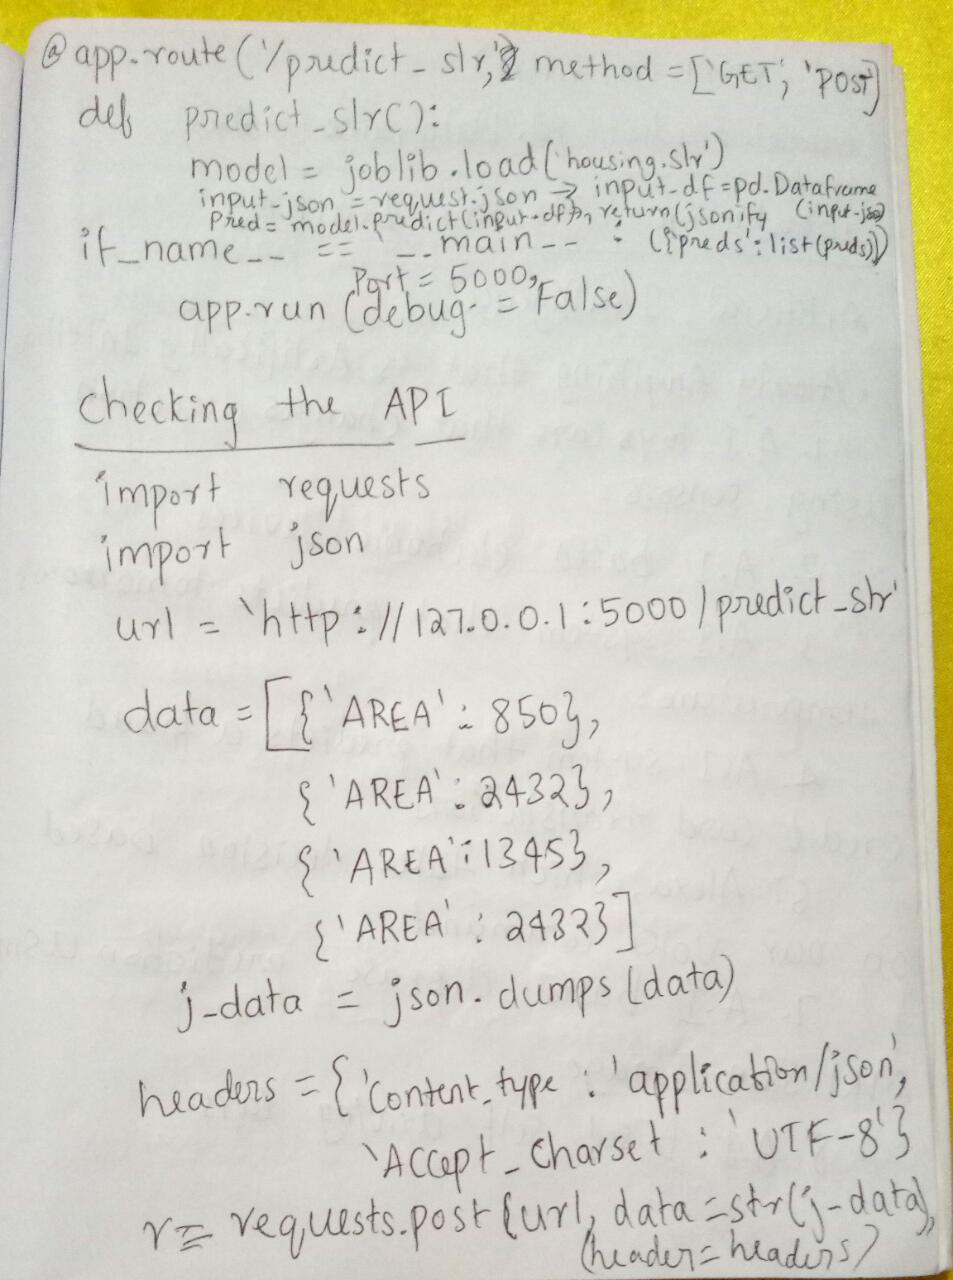 @ app.route('/predict_slr', method = ['GET', 'POST']
def predict_slr():
model = joblib.load('housing.slr')
input_json = request.json → input_df = pd.Dataframe (input-json)
Pred = model.predict(input-df), return(jsonify ({'preds': list(preds)})
if_name__ == '__main__ :
Port = 5000,
app.run (debug = False)
Checking the API
import requests
import json
url = 'http://127.0.0.1:5000/predict_slr'
data = [{'AREA': 850},
{'AREA': 2432},
{'AREA': 1345},
{'AREA': 2432}]
j_data = json.dumps (data)
headers = {'Content_type : 'application/json',
'Accept_Charset : 'UTF-8'}
r = requests.post (url, data = str(j-data),
(header = headers)